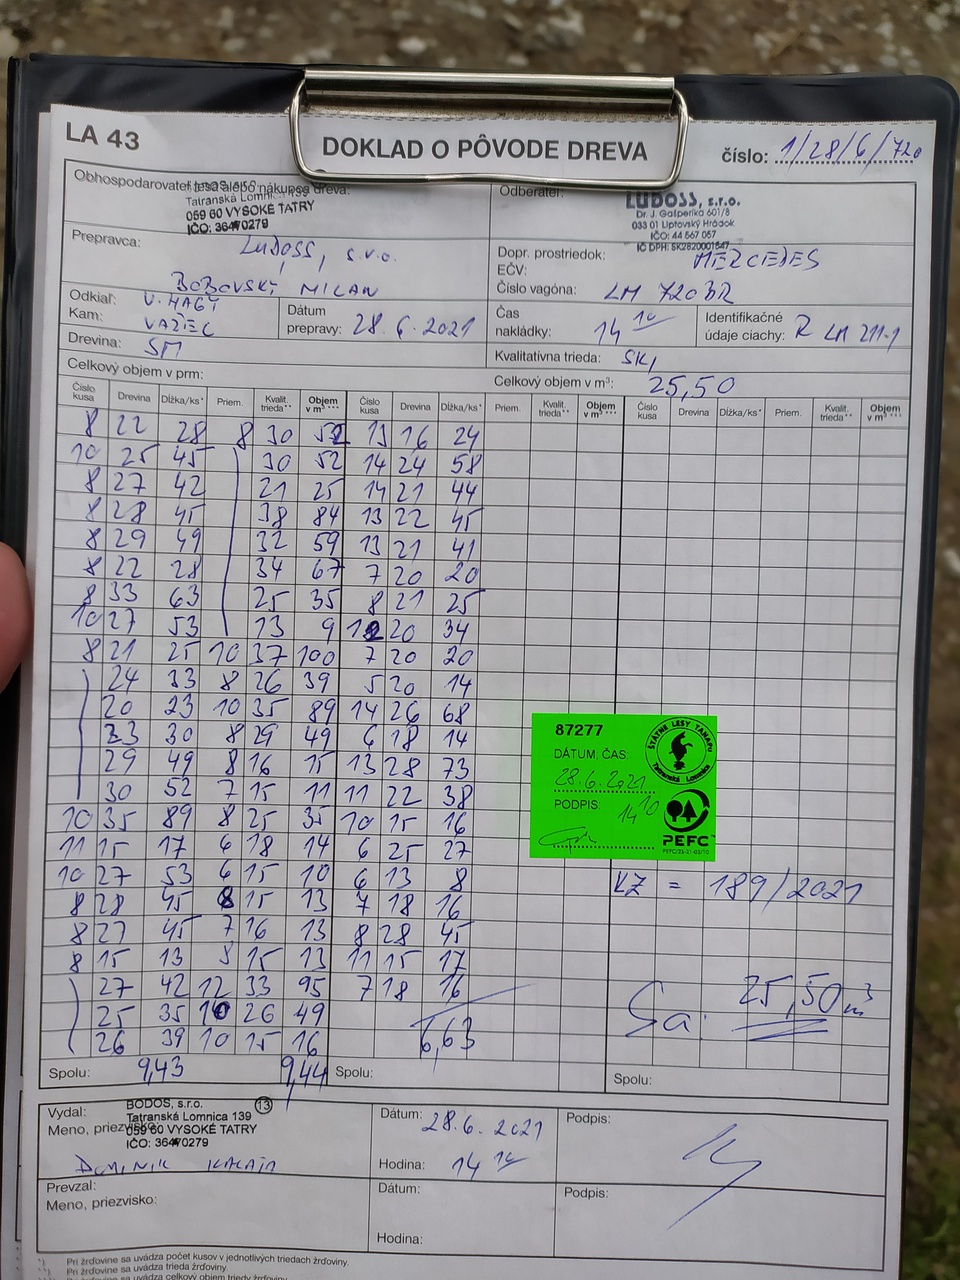 LA 43
DOKLAD O PÔVODE DREVA
číslo: 1/28/6/720
Obhospodarovateľ lesa alebo nákupca dreva:
Tatranská Lomnica 139
059 60 VYSOKÉ TATRY
IČO: 36470279
Odberateľ:
LUDOSS, s.r.o.
Dr. J. Gašperíka 601/8
033 01 Liptovský Hrádok
IČO: 44 567 057
IČ DPH: SK2820001547
Prepravca: LUDOSS, s.r.o.
BOBOVSKÝ MILAN
Dopr. prostriedok: MERCEDES
EČV:
Číslo vagóna: LM 720BR
Odkiaľ: V. HAGY
Kam: VAŽEC
Dátum prepravy: 28.6.2021
Čas nakládky: 14 10
Identifikačné údaje ciachy: R LM 211-1
Drevina: SM
Kvalitatívna trieda: SK,
Celkový objem v prm:
Celkový objem v m³: 25,50
Číslo kusa Drevina Dĺžka/ks* Priem. Kvalit. trieda** Objem v m³ *** Číslo kusa Drevina Dĺžka/ks* Priem. Kvalit. trieda** Objem v m³ *** Číslo kusa Drevina Dĺžka/ks* Priem. Kvalit. trieda** Objem v m³ ***
8 22 28 8 30 52 13 16 24
10 25 45 30 52 14 24 58
8 27 42 21 25 14 21 44
8 28 45 38 84 13 22 45
8 29 49 32 59 13 21 41
8 22 28 34 67 7 20 20
8 33 63 25 35 8 21 25
10 27 53 13 9 20 34
8 21 25 10 37 100 7 20 20
24 33 8 26 39 5 20 14
20 23 10 35 89 14 26 68
23 30 8 29 49 6 18 14
29 49 8 16 15 13 28 73
30 52 7 15 11 11 22 38
10 35 89 8 25 35 10 15 16
11 15 17 6 18 14 6 25 27
10 27 53 6 15 10 6 13 8
8 28 45 8 15 13 7 18 16
8 27 45 7 16 13 8 28 45
8 15 13 8 15 13 11 15 17
27 42 12 33 95 7 18 16
25 35 10 26 49
26 39 10 15 16 6,63
Spolu: 9,43 9,44 Spolu: Spolu:
87277
DÁTUM, ČAS:
28.6.2021
PODPIS: 14 10
ŠTÁTNE LESY TANAPU
Tatranská Lomnica
PEFC
KZ = 189/2021
Sa: 25,50 m³
Vydal:
Meno, priezvisko:
BODOS, s.r.o. 13
Tatranská Lomnica 139
059 60 VYSOKÉ TATRY
IČO: 36470279
DOMINIK
Dátum: 28.6.2021
Hodina: 14 10
Podpis:
Prevzal:
Meno, priezvisko:
Dátum:
Hodina:
Podpis:
*) Pri žrďovine sa uvádza počet kusov v jednotlivých triedach žrďoviny.
Pri žrďovine sa uvádza trieda žrďoviny.
Pri žrďovine sa uvádza celkový objem triedy žrďoviny.